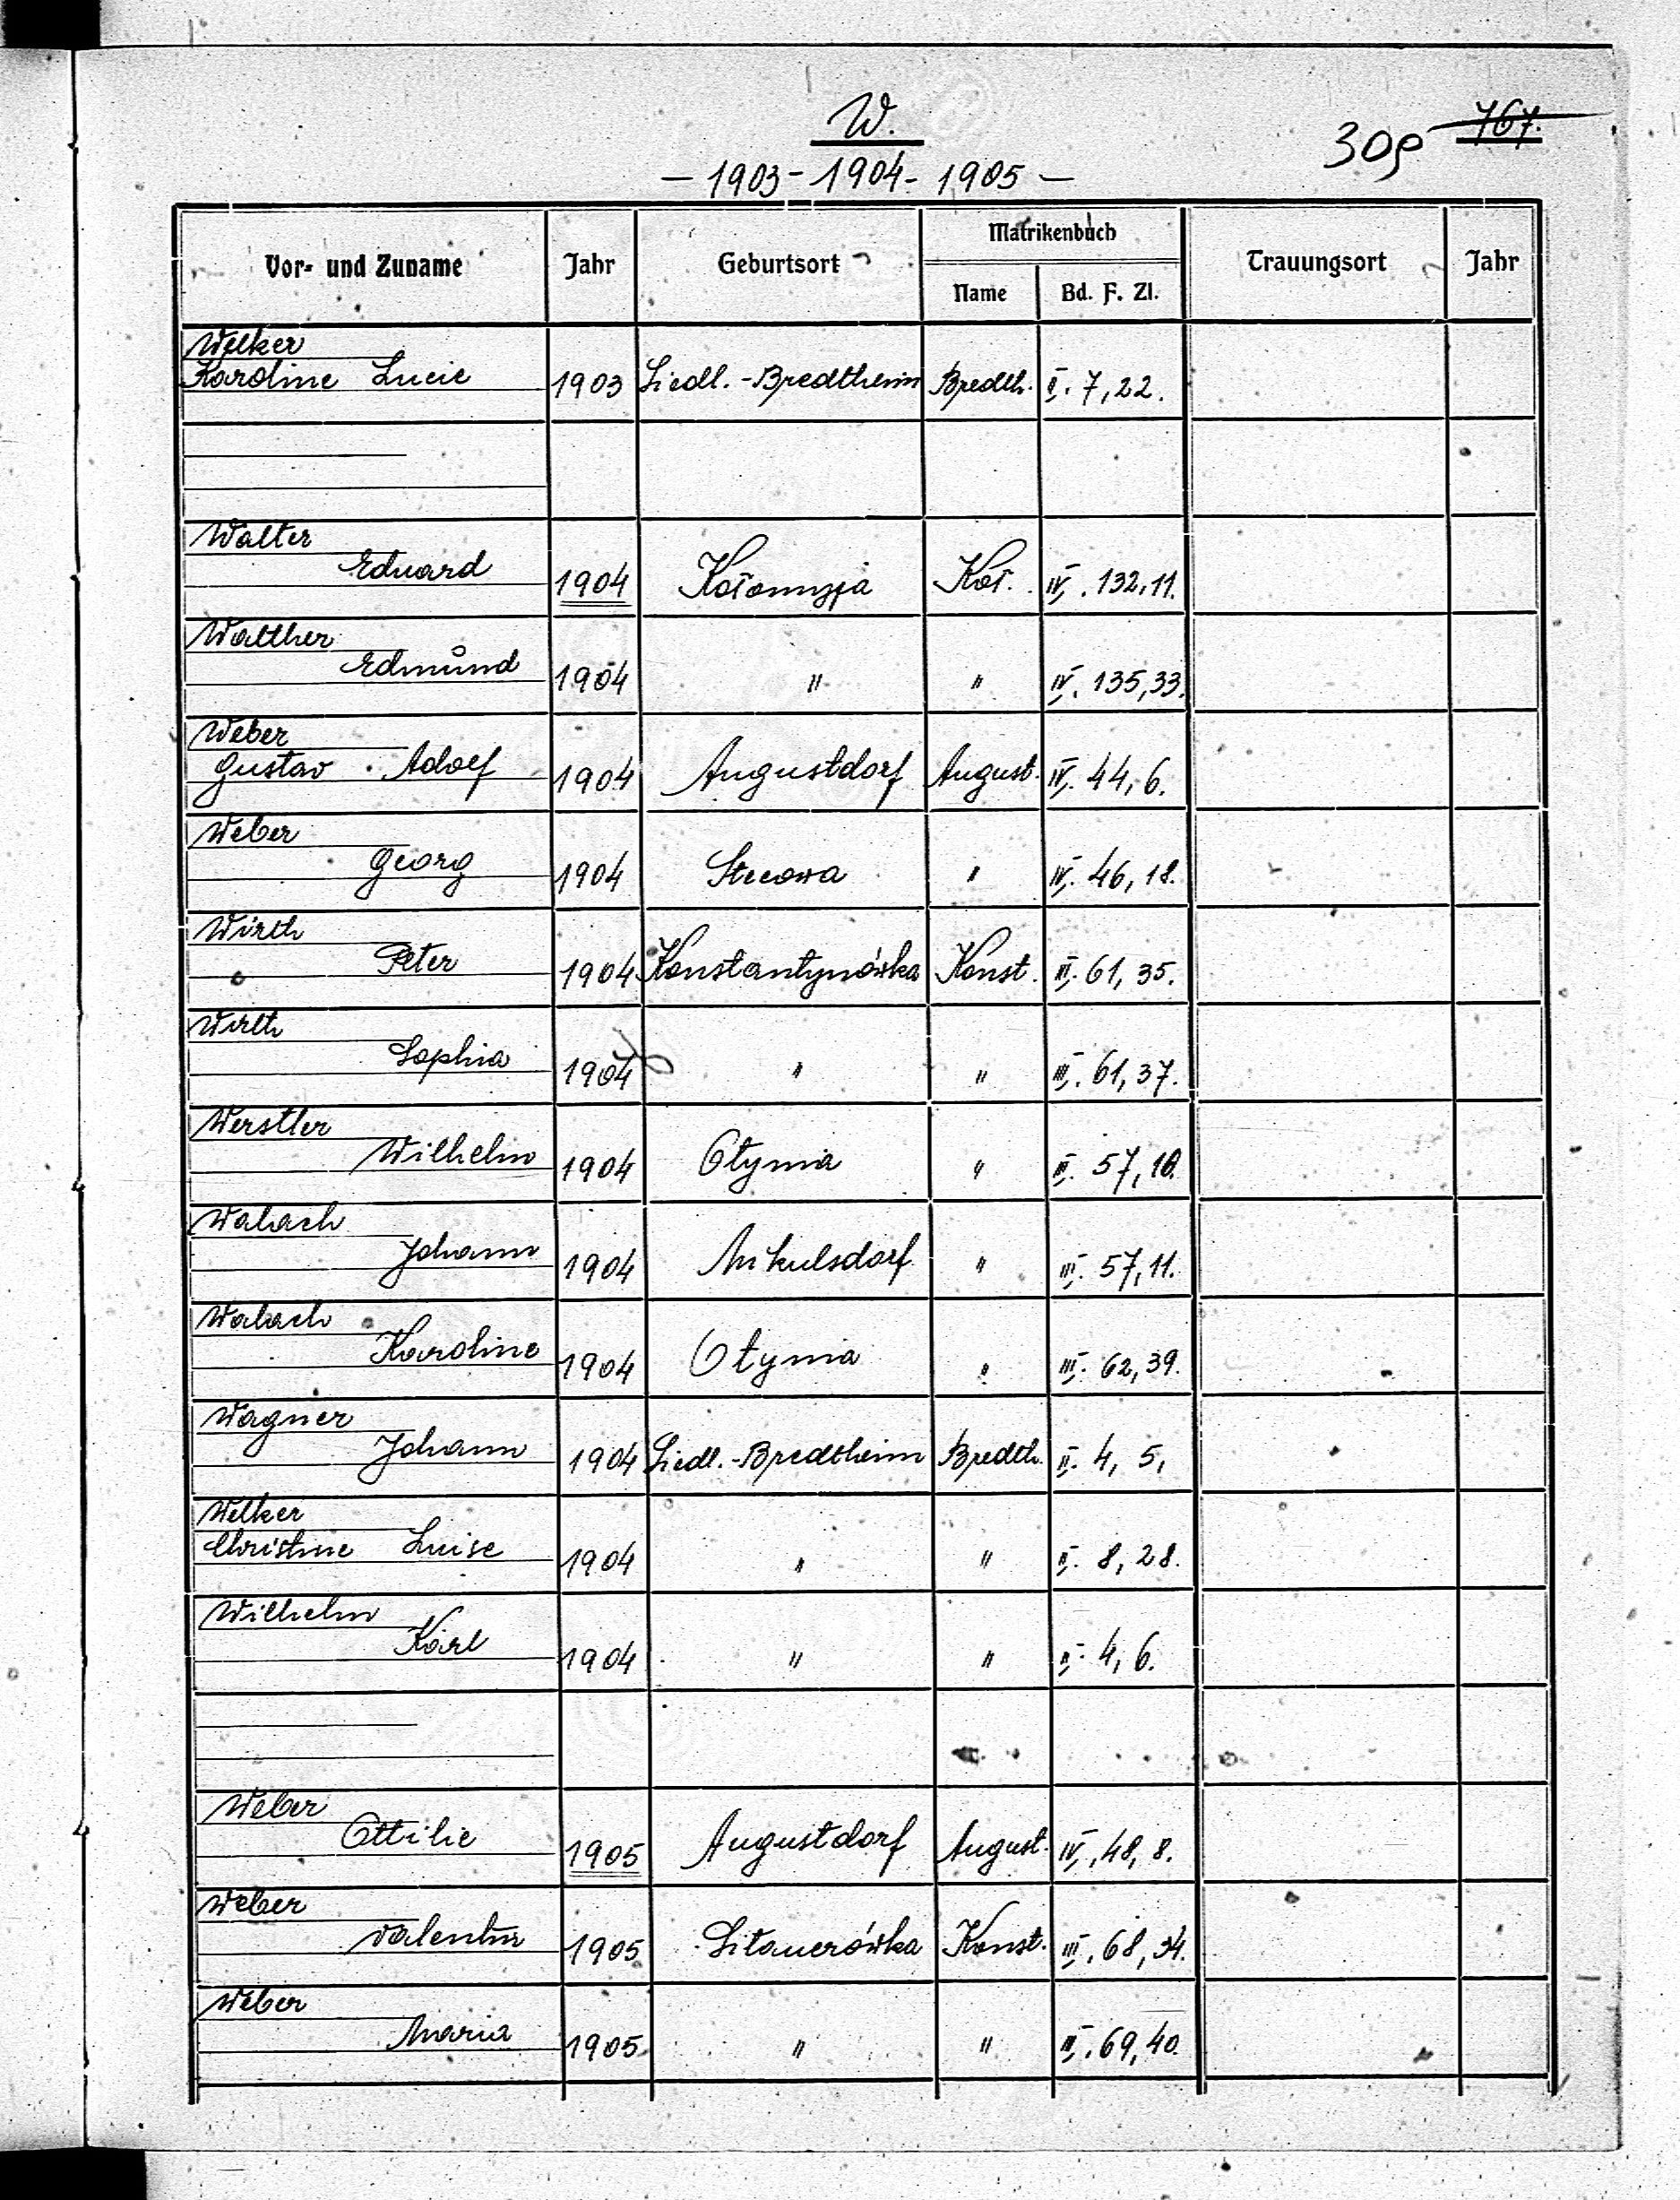 W.
309 767.
- 1903 - 1904 - 1905 -
Vor- und Zuname Jahr Geburtsort Matrikenbuch Trauungsort Jahr
Name Bd. F. Zl.
Welker
Karoline Lucie 1903 Siedl.-Bredtheim Bredth. II. 7, 22.
Walter
Eduard 1904 Kołomyja Koł. IV. 132, 11.
Walther
Edmund 1904 " " IV. 135, 33.
Weber
Gustav Adolf 1904 Augustdorf August. IV. 44, 6.
Weber
Georg 1904 Stecowa " IV. 46, 18.
Wirth
Peter 1904 Konstantynówka Konst. III. 61, 35.
Wirth
Sophia 1904 " " III. 61, 37.
Werstler
Wilhelm 1904 Otynia " III. 57, 10.
Walach
Johann 1904 Mikulsdorf " III. 57, 11.
Walach
Karoline 1904 Otynia " III. 62, 39.
Wagner
Johann 1904 Siedl.-Bredtheim Bredth. II. 4, 5,
Welker
Christine Luise 1904 " " II. 8, 28.
Wilhelm
Karl 1904 " " II. 4, 6.
Weber
Ottilie 1905 Augustdorf August. IV, 48, 8.
Weber
Valentin 1905 Sitauerówka Konst. III, 68, 34.
Weber
Maria 1905 " " III, 69, 40.